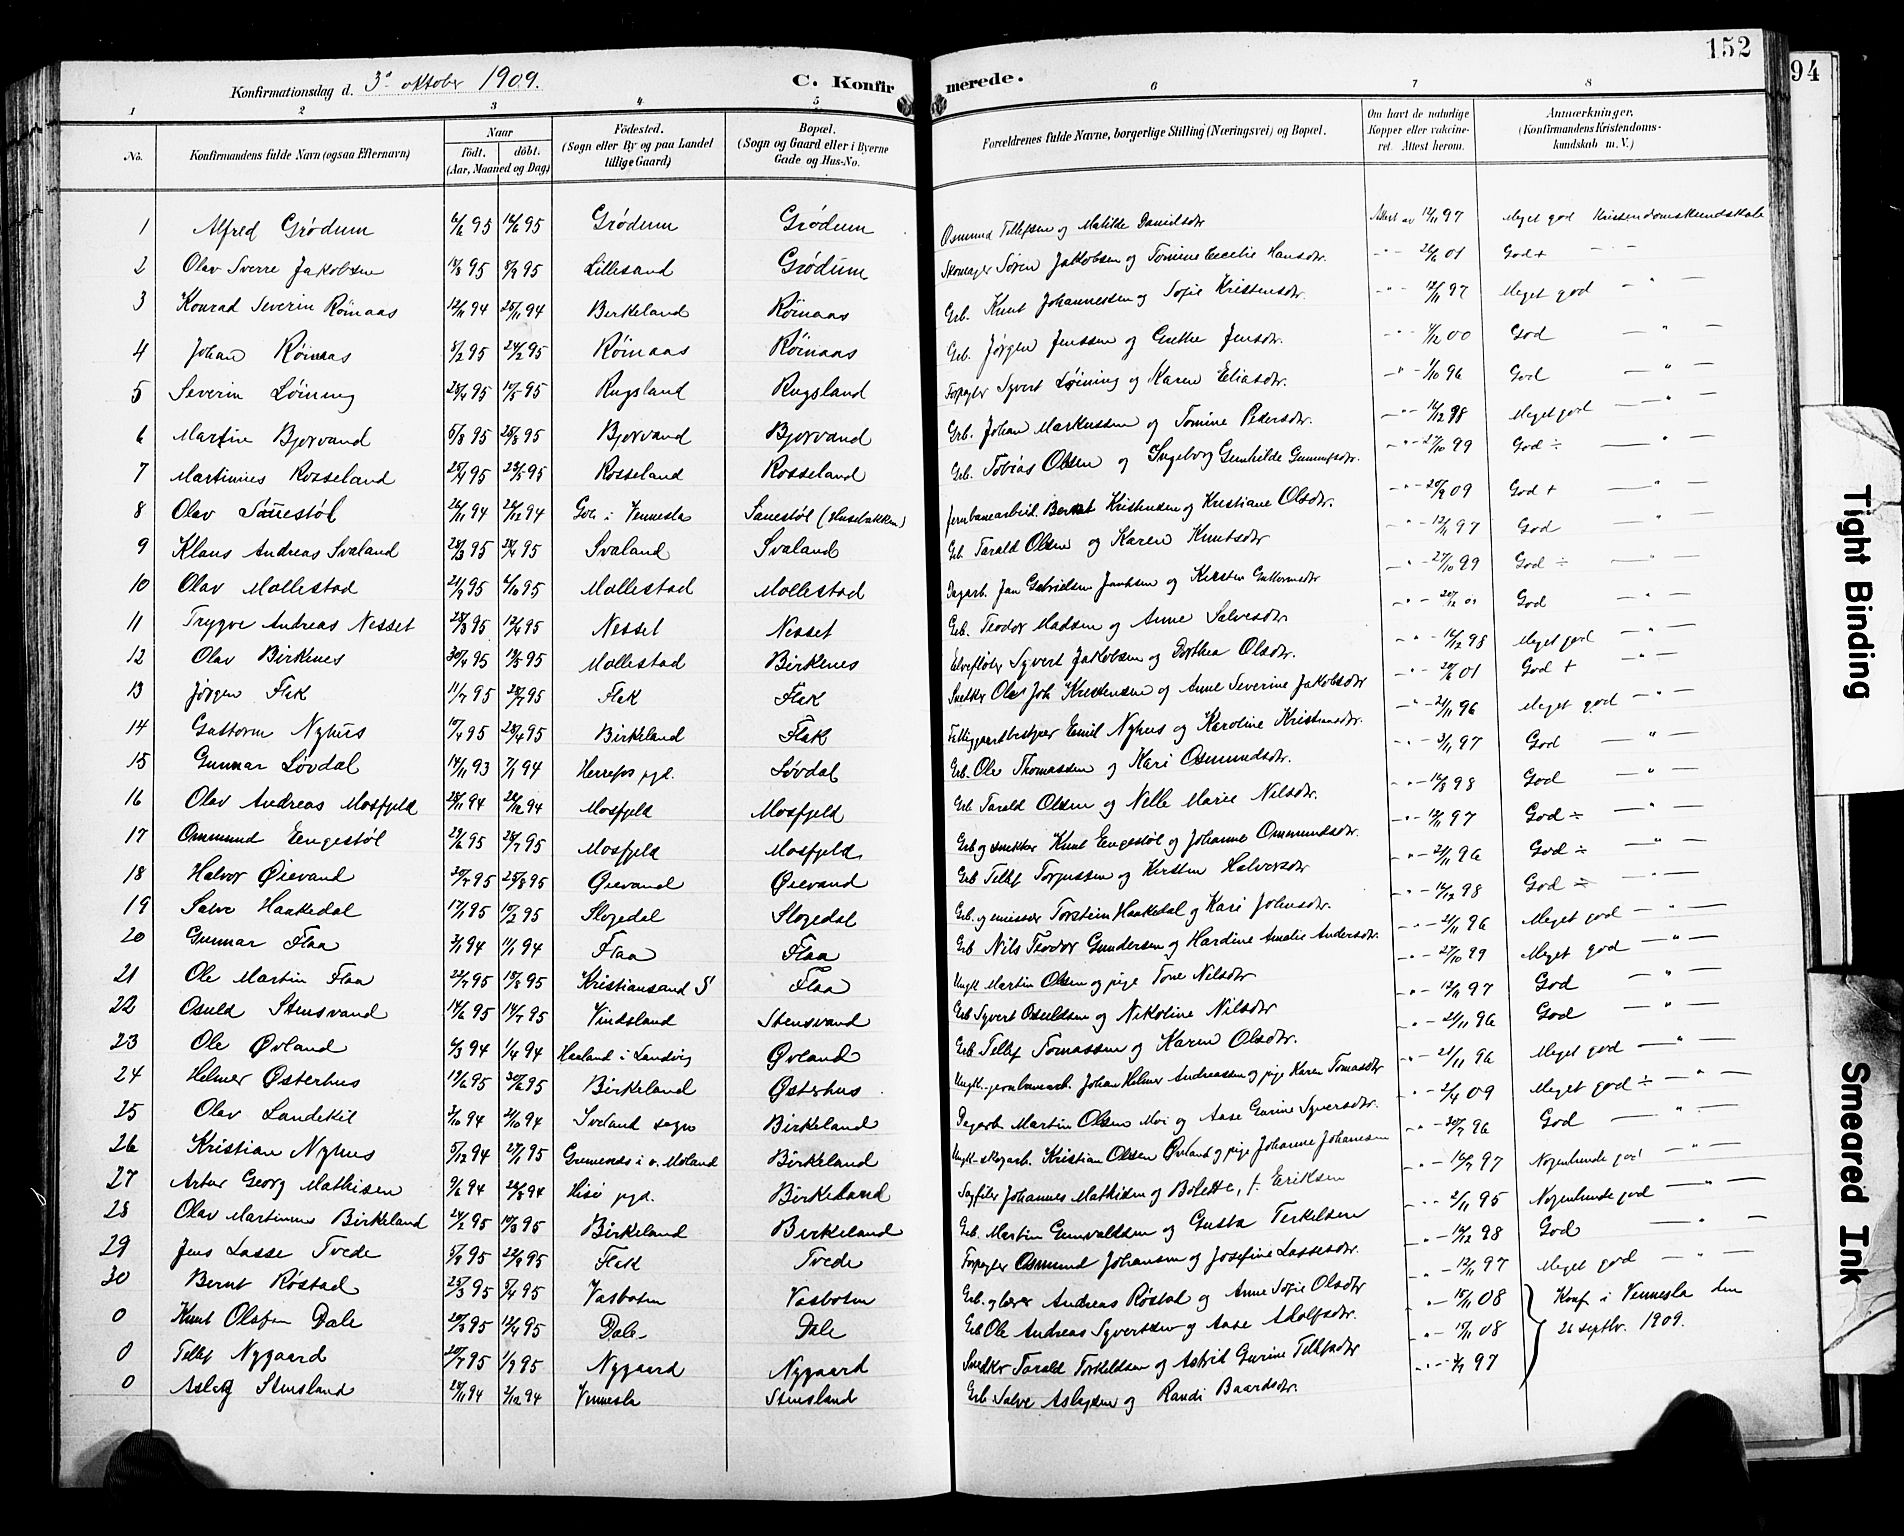 152
94
Konfirmationsdag d. 3º oktober 1909.
C. Konfirmerede.
1 2 3 4 5 6 7 8
No. Konfirmandens fulde Navn (ogsaa Efternavn) Naar født. døbt. (Aar, Maaned og Dag) Fødested. (Sogn eller By og paa Landet tillige Gaard) Bopæl. (Sogn og Gaard eller i Byerne Gade og Hus-No. Forældrenes fulde Navne, borgerlige Stilling (Næringsvei) og Bopæl. Om havt de naturlige Kopper eller vaccineret. Attest herom. Anmærkninger. (Konfirmandens Kristendomskundskab m. V.)
1 Alfred Grødum 6/6 95 16/6 95 Grødum Grødum Osmund Tellefsen og Matilde Danielsdtr Attest av 12/11 97 Meget god Kristendomskundskab
2 Olav Sverre Jakobsen 8/9 95 Lillesand Grødum Skomager Søren Jakobsen og Tomine Cecilie Hansdtr. 26/6 01 God+
3 Konrad Severin Røinaas 12/11 94 25/11 94 Birkeland Røinaas Grb. Knut Johannessen og Sofie Kristensdtr. 12/11 97 Meget god
4 Johan Røinaas 5/2 95 24/2 95 Røinaas Røinaas Grb. Jørgen Jenssen og Grethe Jensdtr. 00 God
5 Severin Løining 28/4 95 95 Rugsland Rugsland Forpagter Syvert Løining og Karen Eliasdtr. 1/10 96 God
6 Martin Bjorvand 5/8 95 25/8 95 Bjorvand Bjorvand Grb. Johan Markussen og Tomine Pedersdtr. 16/12 98 Meget god
7 Martinius Rosseland 95 95 Rosseland Rosseland Grb. Tobias Olsen og Ingeborg Gunhilde Gunnufsdtr. 27/10 99 God ÷
8 Olav Sanestøl 26/11 94 26/12 94 i Vennesla Sanestøl (Husebakken) Jernbanearbeid. Bernt Kristensen og Kristiane Olsdtr. 20/9 09 God +
9 Klaus Andreas Svaland 28/3 95 28/4 95 Svaland Svaland Grb. Tarald Olsen og Karen Knutsdtr 12/11 97 God
10 Olav Mollestad 21/9 95 6/10 95 Mollestad Mollestad Dagarb. Jan Gabrielsen og Kirsten Guttormsdtr 27/10 99 God ÷
11 Trygve Andreas Nesset 28/3 95 12/4 95 Nesset Nesset Grb. Teodor Madsen og Anne Salvesdtr. 20/12 01 God
12 Olav Birkenes 30/4 95 19/5 95 Mollestad Birkenes Elvefløter Syvert Jakobsen og Dorthea Olsdtr. 16/12 98 Meget god
13 Jørgen Flak 11/7 95 28/7 95 Flak Flak Snekker Ole Joh Kristensen og Anne Severine Jakobsdtr 20/6 01 God +
14 Guttorm Nyhus 10/4 95 28/4 95 Birkeland Flak Fattiggaardbestyrer Emil Nyhus og Karoline Kristensdtr. 21/11 96 Meget god
15 Gunnar Løvdal 14/11 93 7/1 94 Herrefos pgd. Løvdal Grb. Ole Thomassen og Kari Osmundsdtr. 3/11 97 God
16 Olav Andreas Mosfjeld 28/11 94 26/12 94 Mosfjeld Mosfjeld Grb Tarald Olsen og Nelle Marie Nilsdtr. 98 God
17 Ommund Engestøl 29/6 95 28/7 95 Mosfjeld Mosfjeld Grb og snekker Knut Engestøl og Johanne Ommundsdtr. 12/11 97 God ÷
18 Halvor Øievand 30/7 95 25/8 95 Øievand Øievand Grb Tellef Torjussen og Kirsten Halvorsdtr 21/11 96 God ÷
19 Salve Haakedal 17/1 95 10/2 95 Slogedal Slogedal Grb. og emissær Torstein Haakedal og Kari Johnsdtr. 16/12 98 God ÷
20 Gunnar Flaa 94 94 Flaa Flaa Grb Nils Teodor Gundersen og Hardine Amalie Andersdtr. 21/11 96 Meget god
21 Ole Martin Flaa 95 95 Kristiansand S Flaa Ungk. Martin Olsen og pige Tone Nilsdtr 27/10 99 Meget god
22 Osuld Stensvand 14/6 95 14/7 95 Vindsland Stensvand Grb Syvert Osuldsen og Nikoline Nilsdtr 12/11 97 God
23 Ole Øvland 94 1/4 94 Haaland i Landvig Øvland Grb Tellef Tomassen og Karen Olsdtr. 21/11 96 God
24 Helmer Østerhus 19/6 95 30/6 95 Birkeland Østerhus Ungk. jernbanearb. Johan Helmer Andreassen og pige Karen Tomasdtr 21/11 96 Meget god
25 Olav Landekil 94 21/10 94 Iveland sogn Birkeland Dagarb. Martin Olsen Moi og Aase Gurine Syversdtr. 2/4 09 Meget god ÷
26 Kristian Nyhus 5/12 94 27/1 95 Gremends i v. Moland Birkeland Ungk. skogarb. Kristian Olsen Øvland og pige Johanne Johansen 20/7 96 God
27 Artur Georg Mathisen 9/6 94 94 Hisø pgd. Birkeland Sagfiler Johannes Mathisen og Bolette, f. Eriksen 16/7 97 Nogenlunde god
28 Olav Martinius Birkeland 24/2 95 10/3 95 Birkeland Birkeland Grb. Martin Gunvaldsen og Gusta Terkelsen 2/11 95 Nogenlunde god
29 Jens Lasse Tvede 5/9 95 22/9 95 Flak Tvede Forpagter Osmund Johansen og Josefine Lassesdtr. 16/12 98 God
30 Bernt Røstad 25/3 95 5/4 95 Vasboten Vasboten Grb. og lærer Andreas Røstad og Anne Sofie Olsdtr 12/11 97 Meget god
0 Knut Olafsen Dale 20/3 95 12/4 95 Dale Dale Grb Ole Andreas Syvertsen og Aase Adolfsdtr. 15/11 08 Konf i Vennesla den
0 Tellef Nygaard 20/7 95 1/9 95 Nygaard Nygaard Snedker Tarald Torkeldsen og Astrid Gurine Tellefsdtr 15/11 08 26 septbr. 1909.
0 Aslag Stensland 94 94 Vennesla Stensland Grb Salve Aslagsen og Randi Baardsdtr. 97
Tight Binding
Smeared Ink